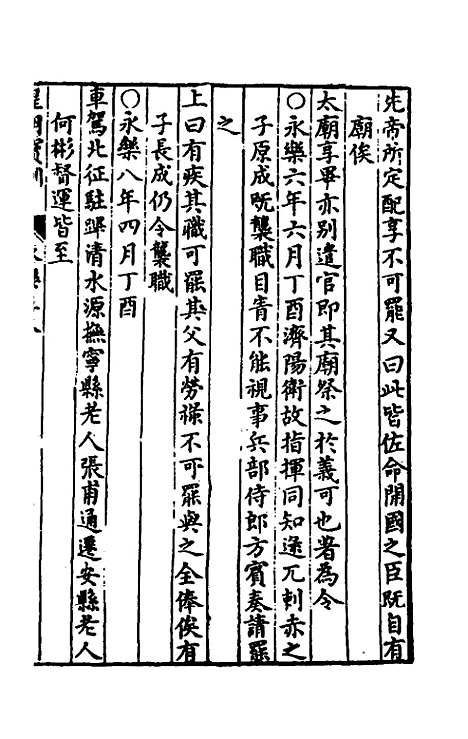 先帝所定配享不可罷又曰此皆佐命開國之臣既自有
廟俟
太廟享畢亦別遣官即其廟祭之於義可也著為令
○永樂六年六月丁酉濟陽衛故指揮同知逯兀剌赤之
子原成既襲職目眚不能視事兵部侍郎方賓奏請罷
之
上曰有疾其職可罷其父有勞祿不可罷與之全俸俟有
子長成仍令襲職
○永樂八年四月丁酉
車駕北征駐蹕清水源撫寧縣老人張甫通遷安縣老人
何彬督運皆至